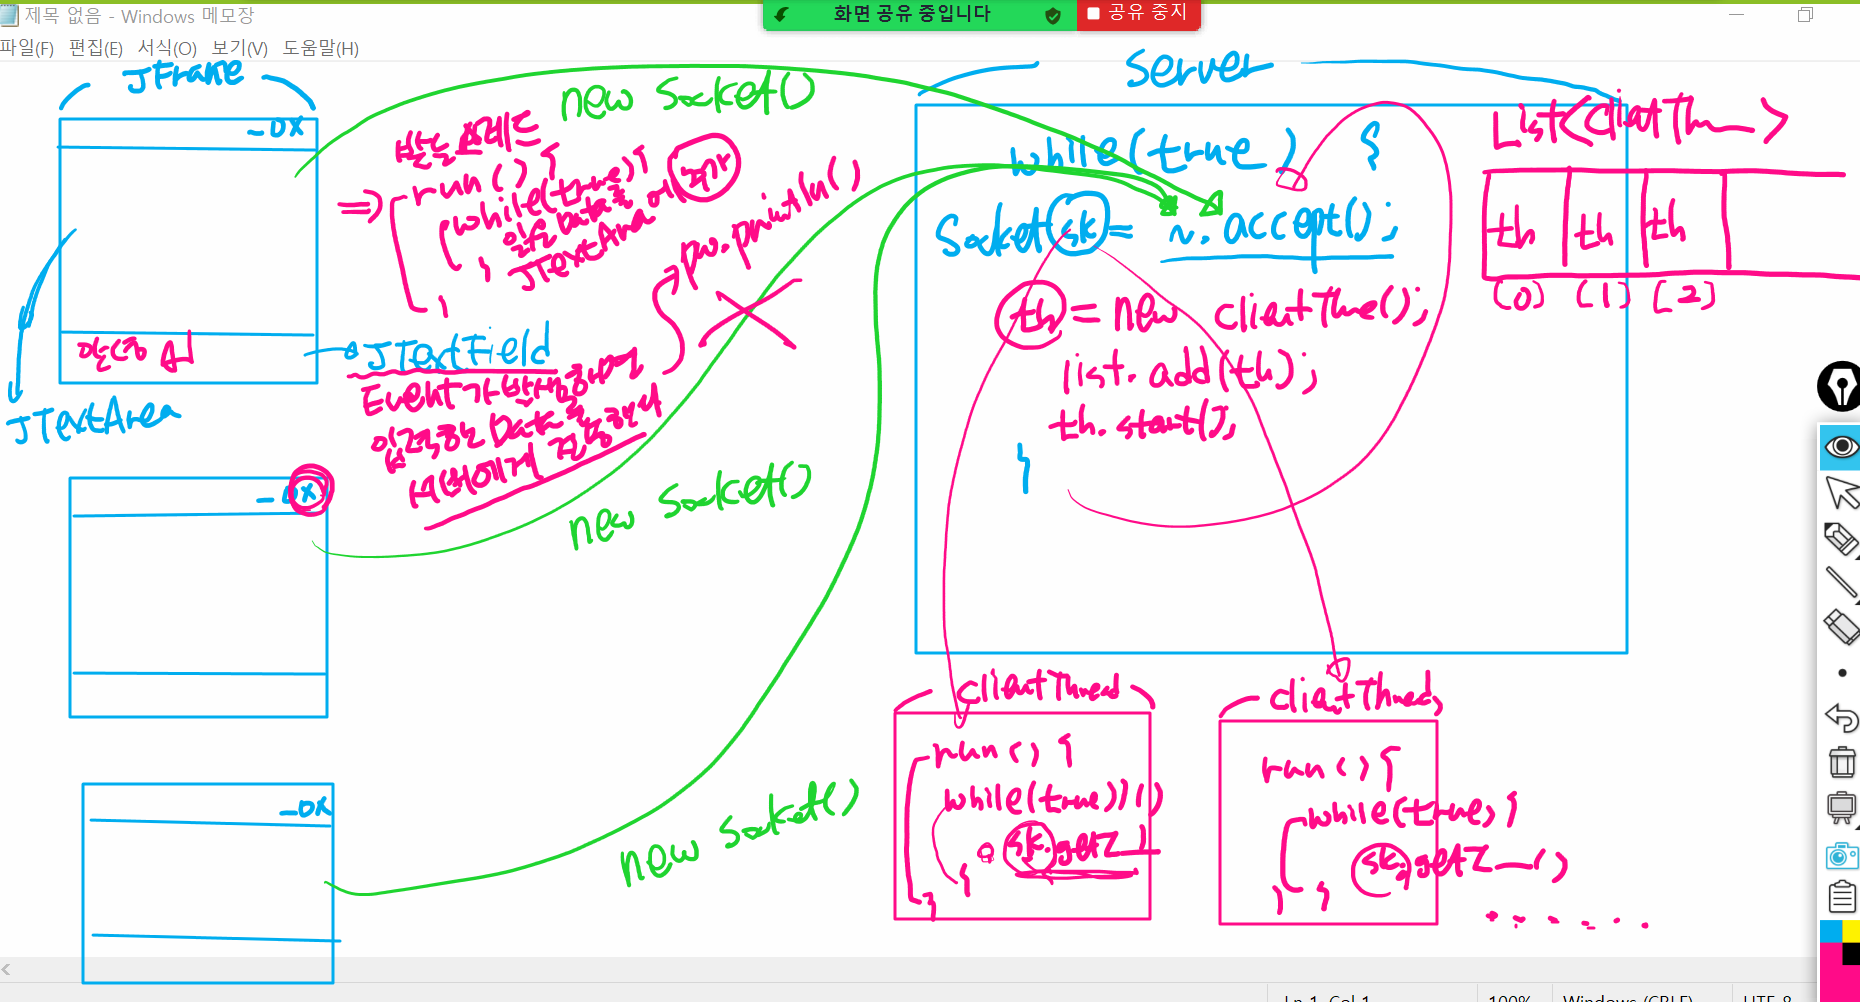 제목 없음 - Windows 메모장
화면 공유 중입니다
공유 중지
파일(F) 편집(E) 서식(O) 보기(V) 도움말(H)
JFrame
new Socket()
받는 스레드
=> run() {
while(true){
읽은 Data를
JTextArea에
}
}
pw.println()
JTextField
Event가 발생하면
입력한 Data를
서버에게 전송한다
JTextArea
new Socket()
new Socket()
Server
while(true) {
Socket sk = accept();
th = new clientThre();
list.add(th);
th.start();
}
List<clientTh >
th th th
(0) (1) [2]
clientThread
run() {
while(true)
sk.getI
}
}
clientThread
run() {
while(true) {
sk.getI ()
}
}
......
Ln 1, Col 1 100% Windows (CRLF) UTF-8